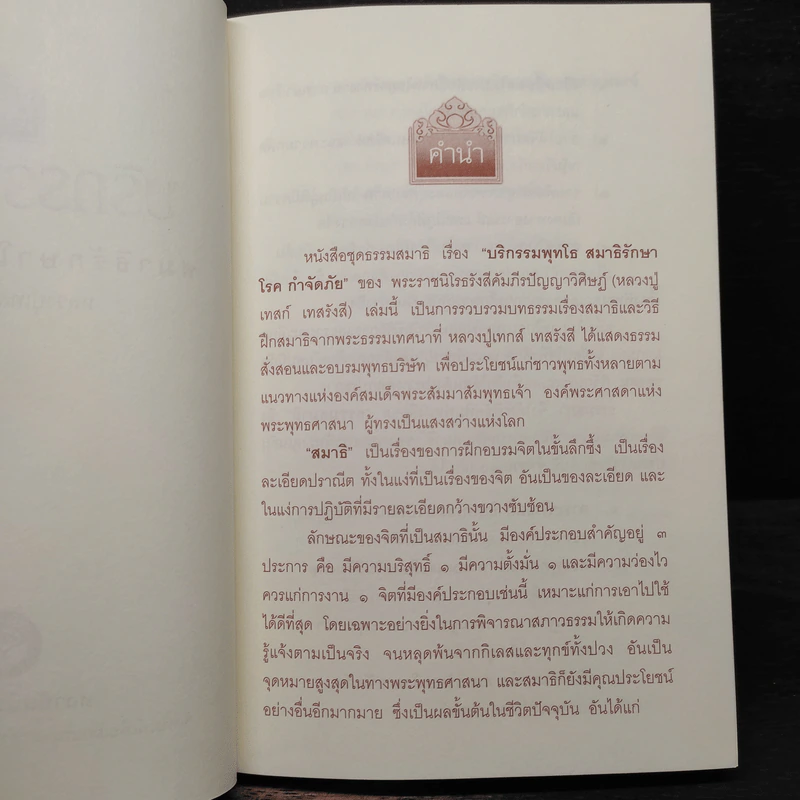 คำนำ
หนังสือชุดธรรมสมาธิ เรื่อง "บริกรรมพุทโธ สมาธิรักษา
โรค กำจัดภัย" ของ พระราชนิโรธรังสีคัมภีรปัญญาวิศิษฏ์ (หลวงปู่
เทสก์ เทสรังสี) เล่มนี้ เป็นการรวบรวมบทธรรมเรื่องสมาธิและวิธี
ฝึกสมาธิจากพระธรรมเทศนาที่ หลวงปู่เทกส์ เทสรังสี ได้แสดงธรรม
สั่งสอนและอบรมพุทธบริษัท เพื่อประโยชน์แก่ชาวพุทธทั้งหลายตาม
แนวทางแห่งองค์สมเด็จพระสัมมาสัมพุทธเจ้า องค์พระศาสดาแห่ง
พระพุทธศาสนา ผู้ทรงเป็นแสงสว่างแห่งโลก
"สมาธิ" เป็นเรื่องของการฝึกอบรมจิตในขั้นลึกซึ้ง เป็นเรื่อง
ละเอียดปราณีต ทั้งในแง่ที่เป็นเรื่องของจิต อันเป็นของละเอียด และ
ในแง่การปฏิบัติที่มีรายละเอียดกว้างขวางซับซ้อน
ลักษณะของจิตที่เป็นสมาธินั้น มีองค์ประกอบสำคัญอยู่ ๓
ประการ คือ มีความบริสุทธิ์ ๑ มีความตั้งมั่น ๑ และมีความว่องไว
ควรแก่การงาน ๑ จิตที่มีองค์ประกอบเช่นนี้ เหมาะแก่การเอาไปใช้
ได้ดีที่สุด โดยเฉพาะอย่างยิ่งในการพิจารณาสภาวธรรมให้เกิดความ
รู้แจ้งตามเป็นจริง จนหลุดพ้นจากกิเลสและทุกข์ทั้งปวง อันเป็น
จุดหมายสูงสุดในทางพระพุทธศาสนา และสมาธิก็ยังมีคุณประโยชน์
อย่างอื่นอีกมากมาย ซึ่งเป็นผลขั้นต้นในชีวิตปัจจุบัน อันได้แก่